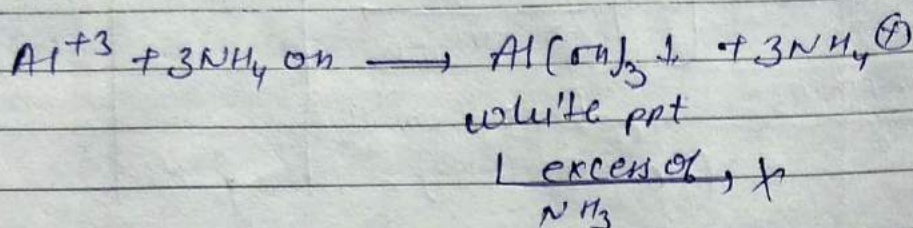 Al+3 + 3NH4 OH ⟶ Al(OH)3 ↓ + 3NH4 ⊕
white ppt
excess of, x
NH3